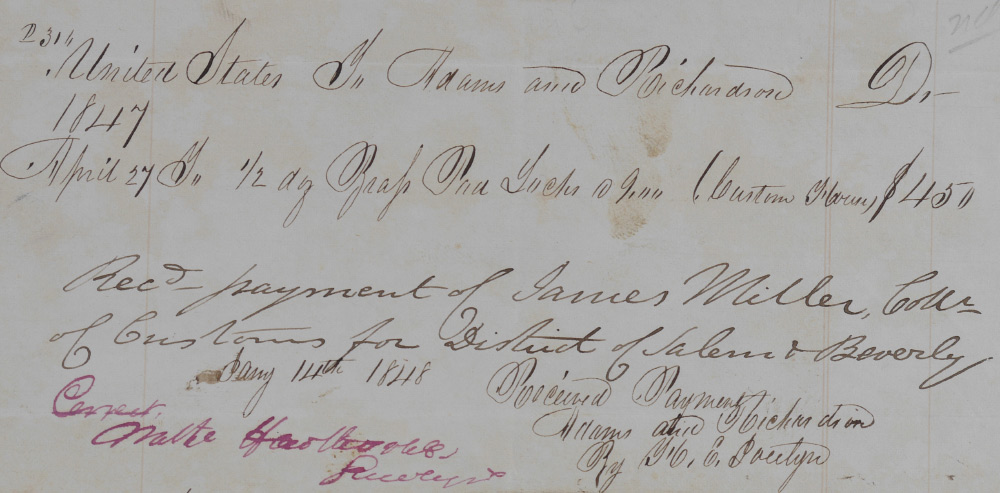 P 31"
United States To Adams and Richardson Dr
1847
April 27 To 1/2 dz Brass Pad Locks @ 9.00 (Custom House) $4 50
Recd payment of James Miller, Collr
of Customs for District of Salem & Beverly
Jany 14th 1848
Received Payment
Adams and Richardson
By H. E. Jocelyn
Correct.
Nathl Hawthorne